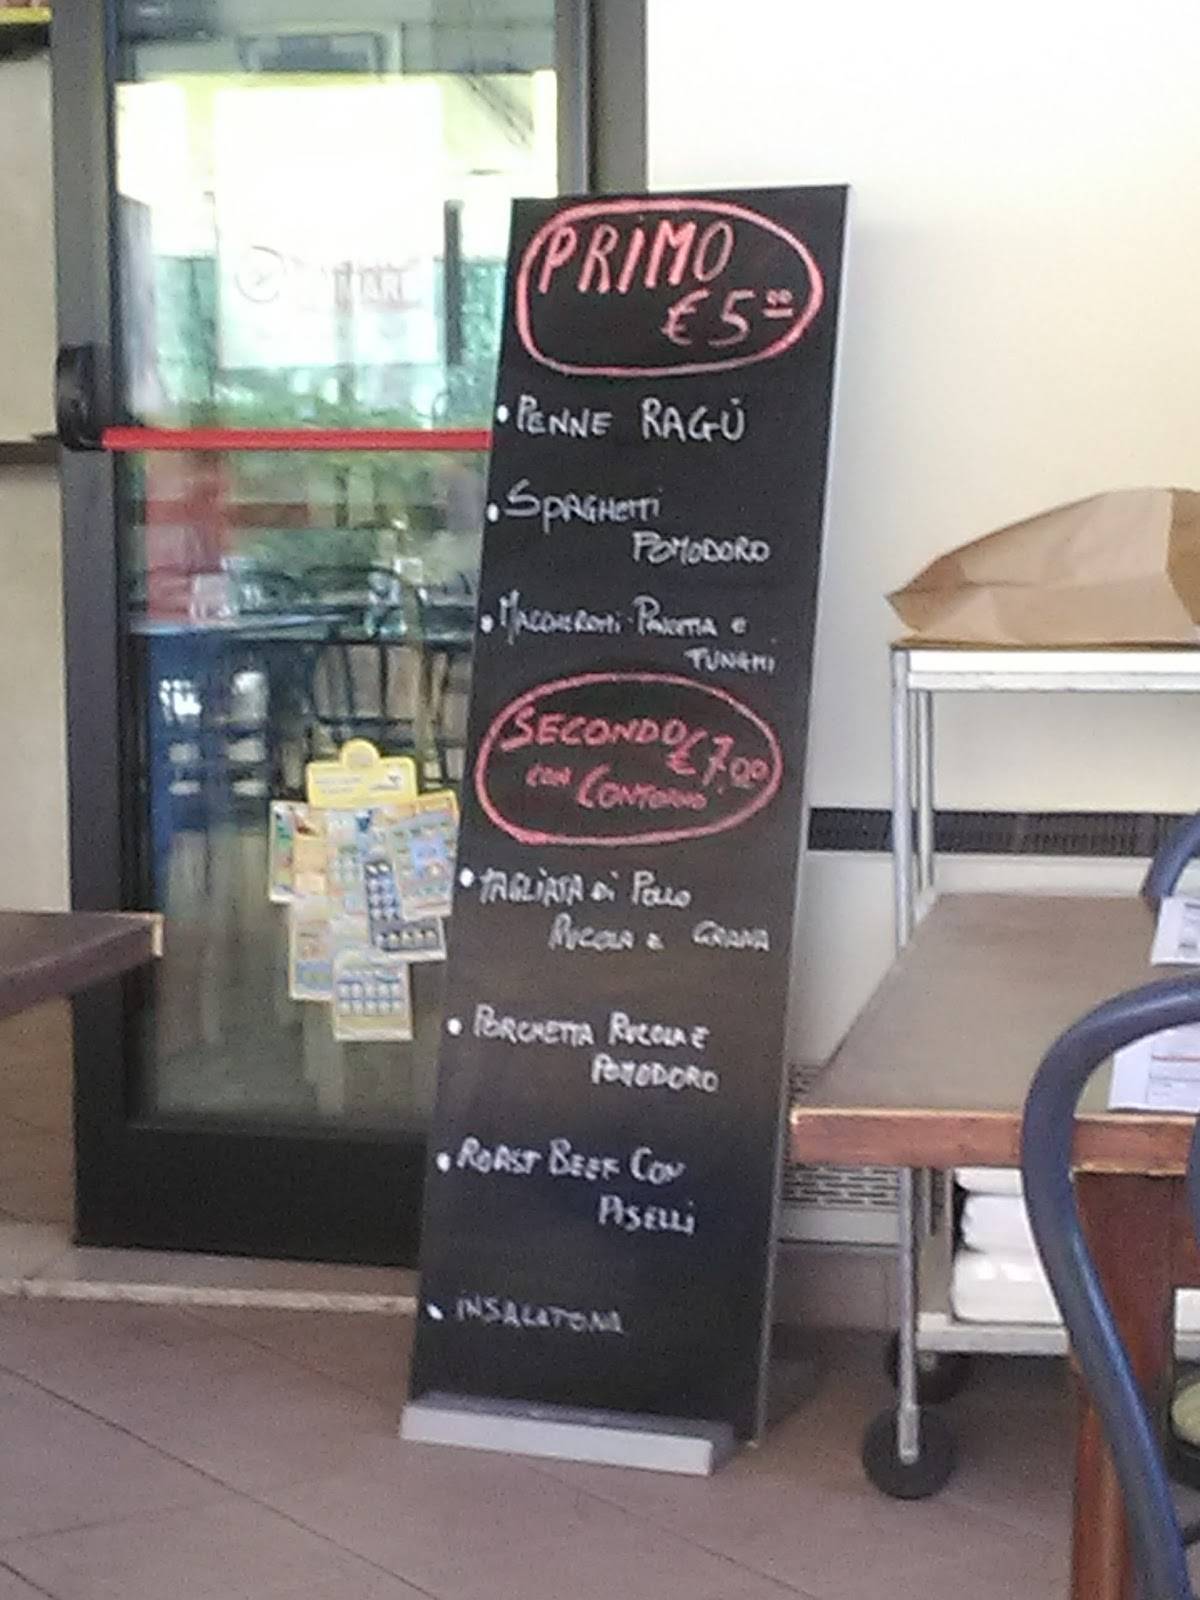 PRIMO
€ 5,00
• PENNE RAGÙ
• SPAGHETTI
POMODORO
• MACCHERONI PANCETTA E
FUNGHI
SECONDO € 7,00
CON CONTORNO
• TAGLIATA DI POLLO
RUCOLA E GRANA
• PORCHETTA RUCOLA E
POMODORO
• ROAST BEEF CON
PISELLI
• INSALATONA